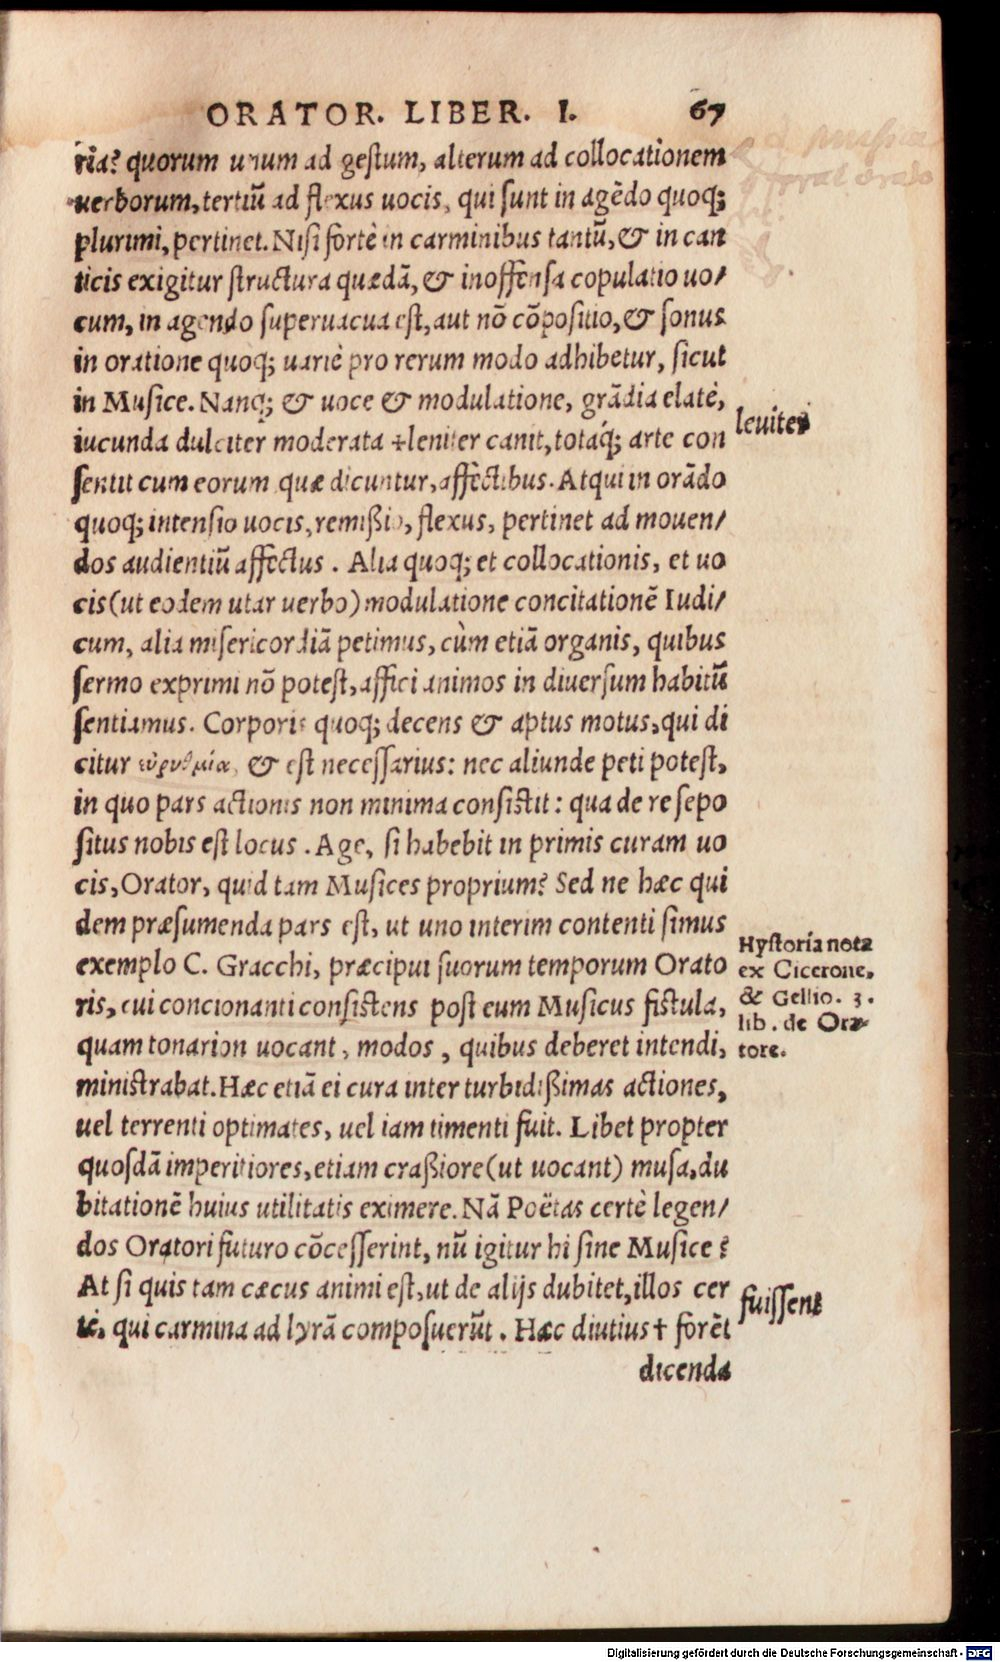 ORATOR. LIBER. I. 67
ria? quorum unum ad gestum, alterum ad collocationem
uerborum, tertiũ ad flexus uocis, qui sunt in agẽdo quoq;
plurimi, pertinet. Nisi fortè in carminibus tantũ, & in can
ticis exigitur structura quædã, & inoffensa copulatio uo/
cum, in agendo superuacua est, aut nõ cõpositio, & sonus
in oratione quoq; uariè pro rerum modo adhibetur, sicut
in Musice. Nanq; & uoce & modulatione, grãdia elatè,
iucunda dulciter moderata +leniter canit, totaq́; arte con
leuiter
sentit cum eorum quæ dicuntur, affectibus. Atqui in orãdo
quoq; intensio uocis, remißio, flexus, pertinet ad mouen/
dos audientiũ affectus. Alia quoq; et collocationis, et uo
cis (ut eodem utar uerbo) modulatione concitationẽ Iudi/
cum, alia misericordiã petimus, cùm etiã organis, quibus
sermo exprimi nõ potest, affici animos in diuersum habitũ
sentiamus. Corporis quoq; decens & aptus motus, qui di
citur εὐρυθμία, & est necessarius: nec aliunde peti potest,
in quo pars actionis non minima consistit: qua de re sepo
situs nobis est locus. Age, si habebit in primis curam uo
cis, Orator, quid tam Musices proprium? Sed ne hæc qui
dem præsumenda pars est, ut uno interim contenti simus
exemplo C. Gracchi, præcipui suorum temporum Orato
ris, cui concionanti consistens post eum Musicus fistula,
quam tonarion uocant, modos, quibus deberet intendi,
Hystoria nota
ex Cicerone,
& Gellio. 3.
lib. de Ora-
tore.
ministrabat. Hæc etiã ei cura inter turbidißimas actiones,
uel terrenti optimates, uel iam timenti fuit. Libet propter
quosdã imperitiores, etiam craßiore (ut uocant) musa, du
bitationẽ huius utilitatis eximere. Nã Poëtas certè legen/
dos Oratori futuro cõcesserint, nũ igitur hi sine Musice?
At si quis tam cæcus animi est, ut de alijs dubitet, illos cer
tè, qui carmina ad lyrã composuerũt. Hæc diutius † forẽt
fuissent
dicenda
Digitalisierung gefördert durch die Deutsche Forschungsgemeinschaft - DFG